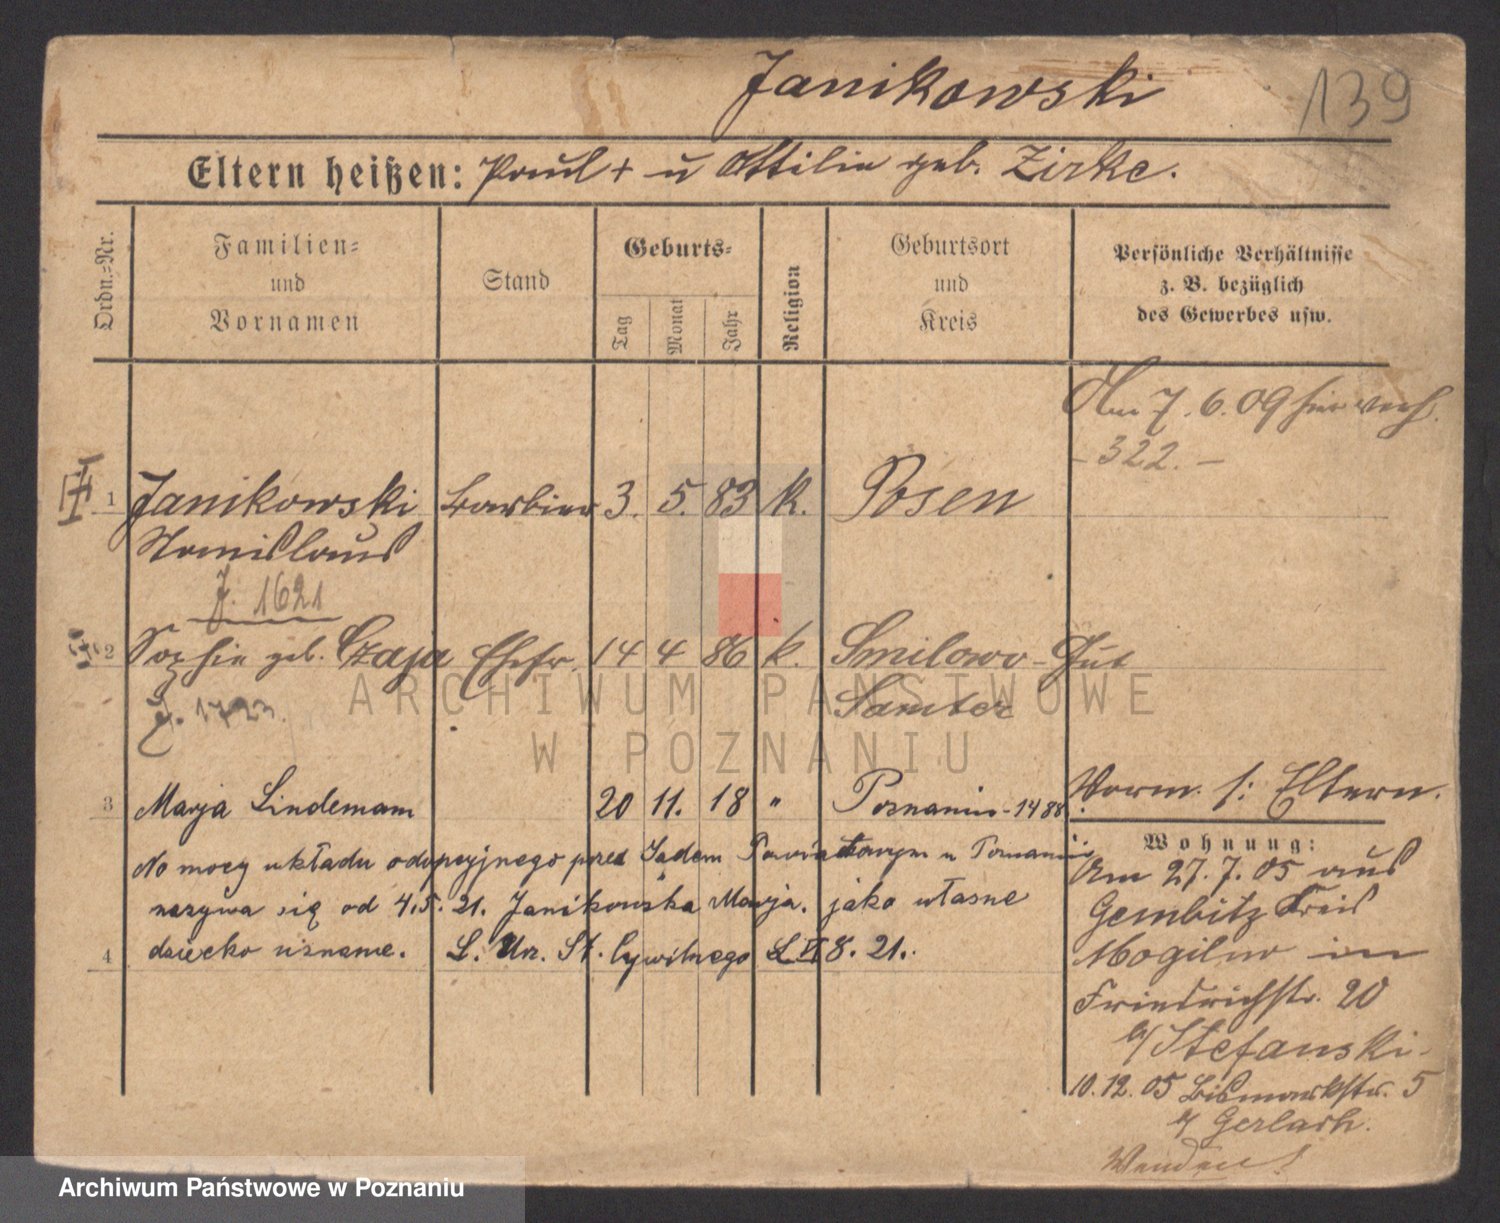 Janikowski
139
Eltern heißen: Paul + u Ottilie geb. Zirke.
Ordn.=Nr.
Familien=
und
Vornamen
Stand
Geburts=
Tag
Monat
Jahr
Religion
Geburtsort
und
Kreis
Persönliche Verhältnisse
z. B. bezüglich
des Gewerbes usw.
Am 7.6.09 hier verh.
- 322. -
1 Janikowski Barbier 3. 5. 83 k. Posen
Stanislaus
J. 1621
2 Sophie geb. Czaja Ehefr. 14 4 86 k. Smilowo-Gut
Samter
J. 1723.
3 Marja Lindemann 20 11. 18 " Poznaniu-1488
Vorm. s: Eltern.
Na mocy układu adopcyjnego przed Sądem Powiatowym w Poznaniu
nazywa się od 4.5.21. Janikowska Marja. jako własne
4 dziecko uznane. L. Urz. St. Cywilnego 8. 21.
Wohnung:
Am 27.7.05 aus
Gembitz Kreis
Mogilno in
Friedrichstr. 20
b/ Stefanski.
10.12.05 Bismarckstr. 5
b/ Gerlach.
Wenden!
ARCHIWUM PAŃSTWOWE
W POZNANIU
Archiwum Państwowe w Poznaniu